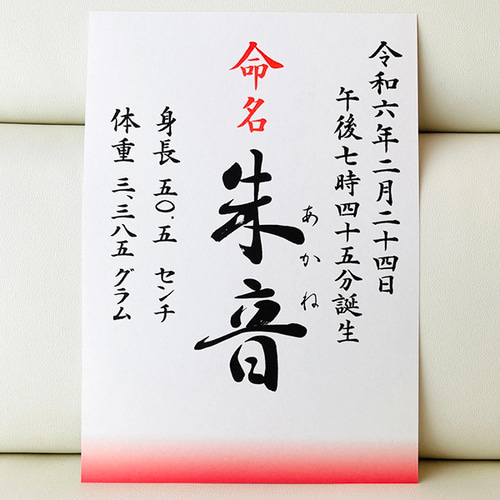 令和六年二月二十四日
午後七時四十五分誕生
命名
朱音
あかね
身長 五〇.五 センチ
体重 三、三八五 グラム